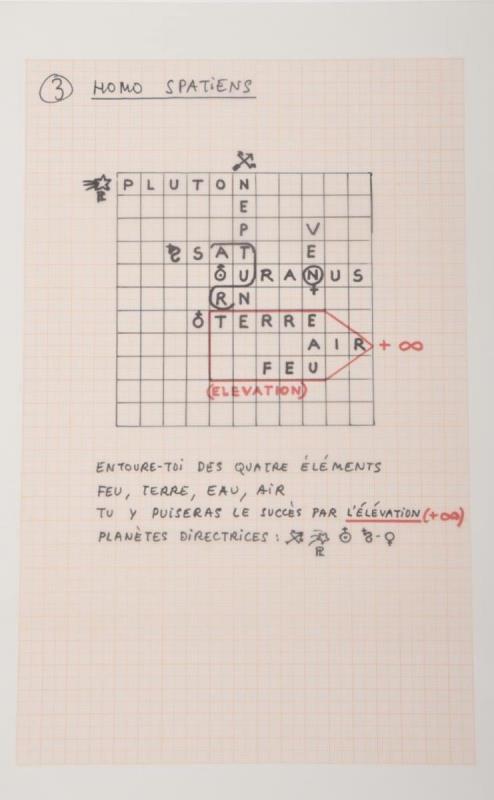 ③ HOMO SPATIENS
PLUTON
E
P V
SAT E
URANUS
RN
♁ TERRE
AIR + ∞
FEU
(ELEVATION)
ENTOURE-TOI DES QUATRE ÉLÉMENTS
FEU, TERRE, EAU, AIR
TU Y PUISERAS LE SUCCÈS PAR L'ÉLÉVATION (+∞)
PLANÈTES DIRECTRICES :